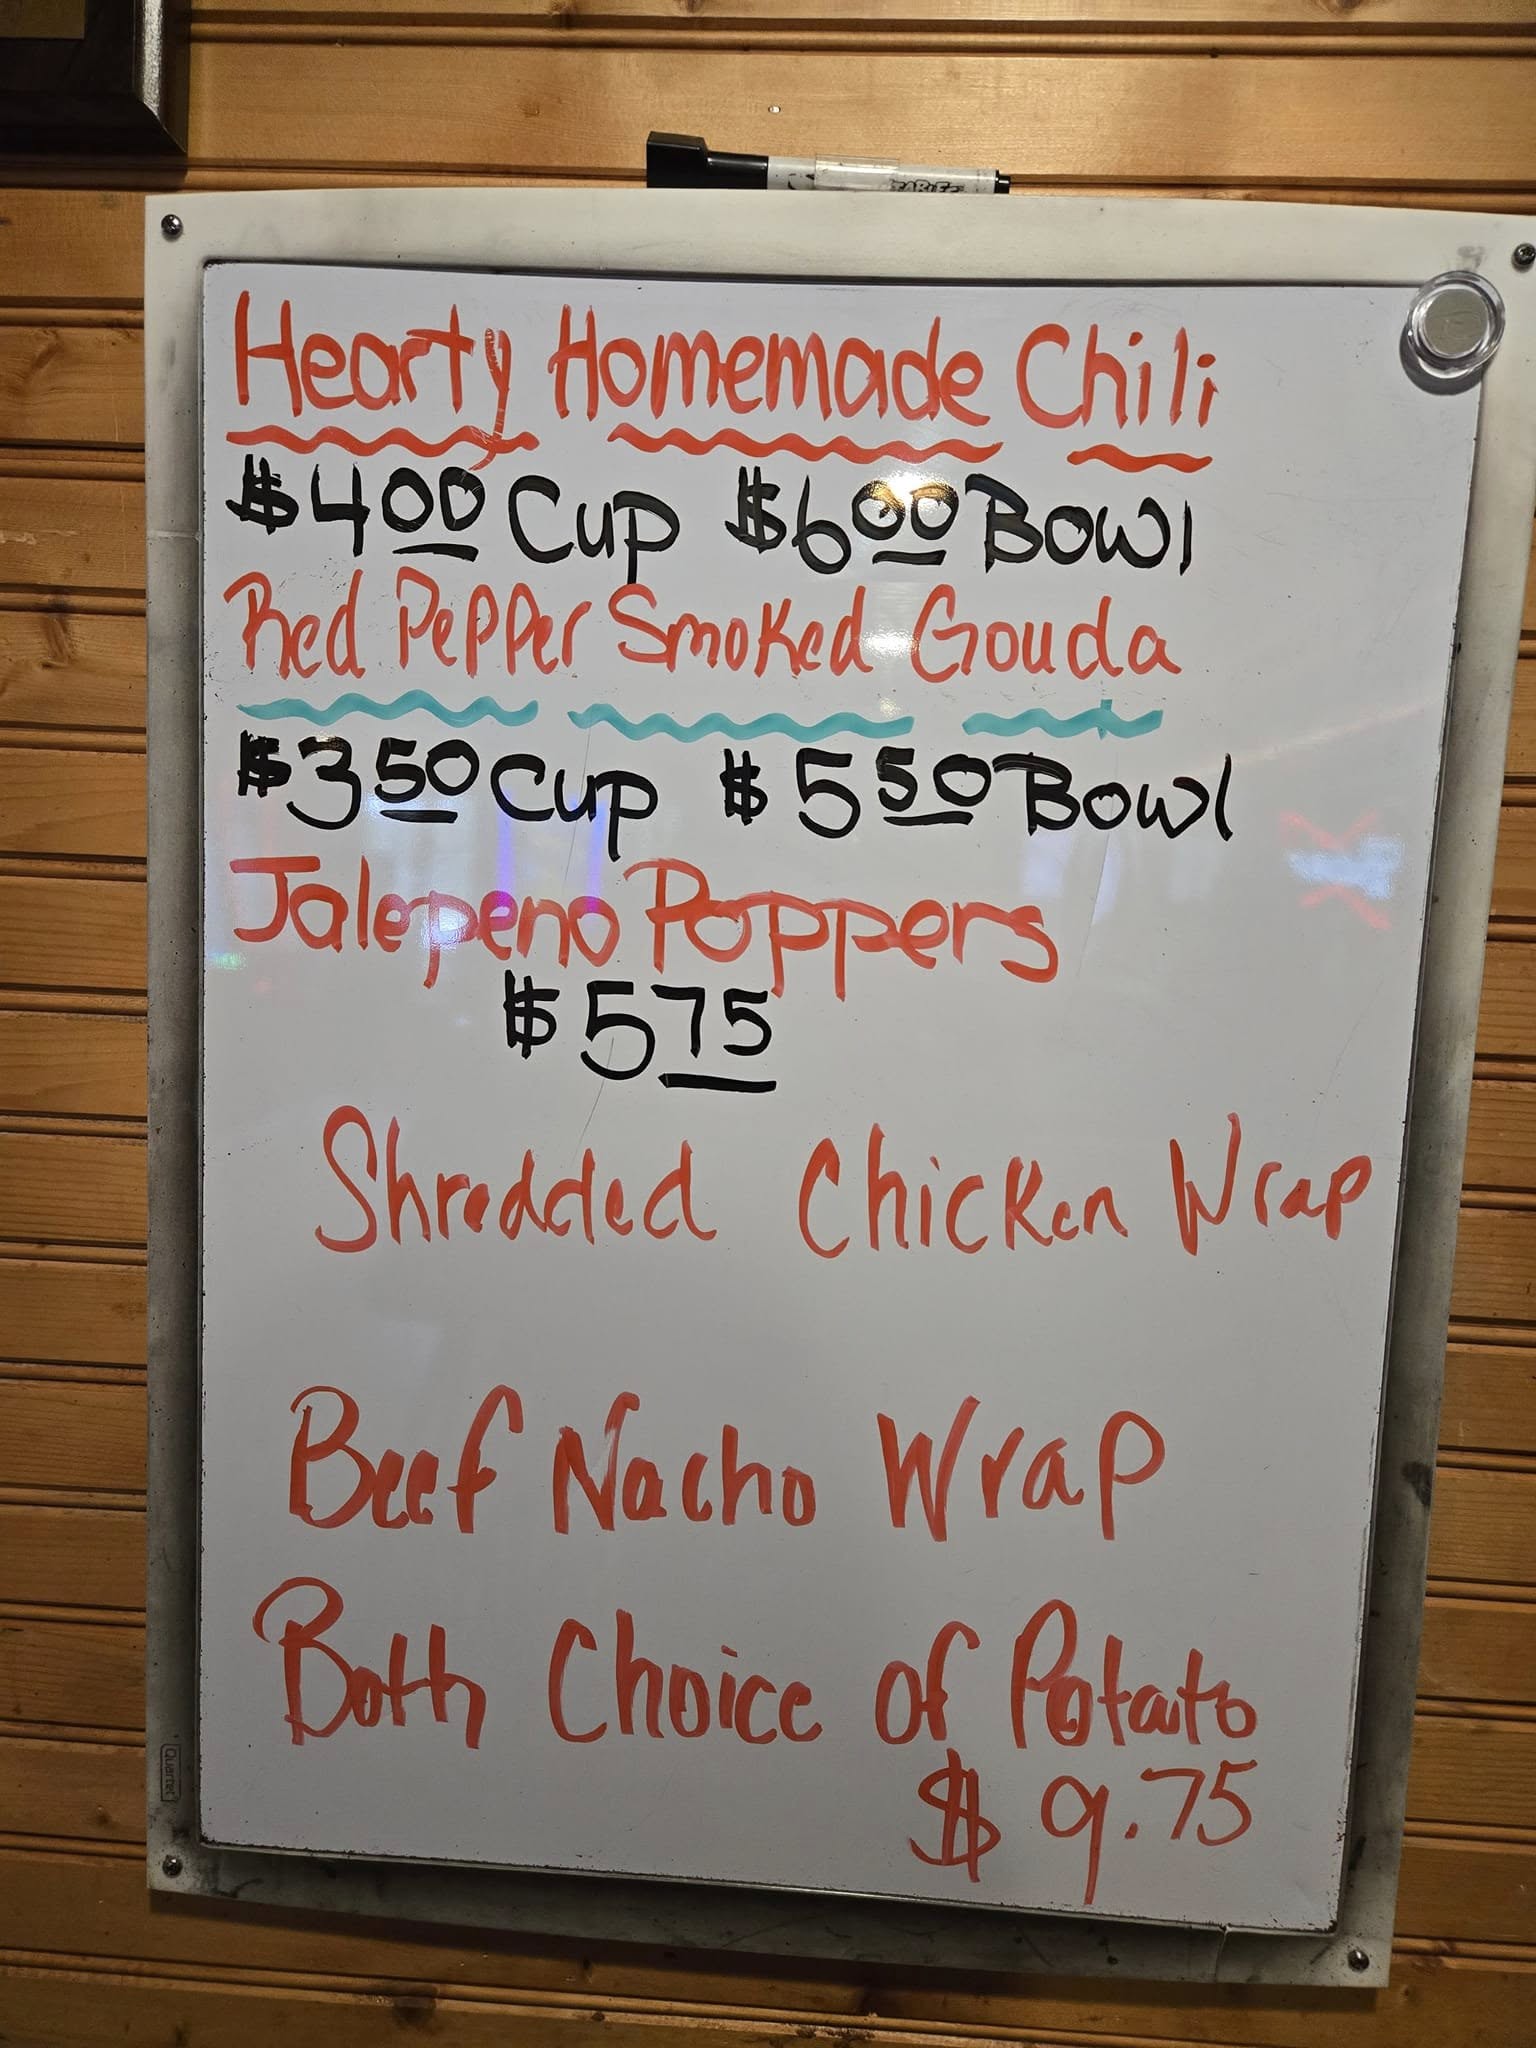 Hearty Homemade Chili
$4.00 Cup $6.00 Bowl
Red Pepper Smoked Gouda
$3.50 Cup $5.50 Bowl
Jalepeno Poppers
$5.75
Shredded Chicken Wrap
Beef Nacho Wrap
Both Choice of Potato
$9.75
Quartet